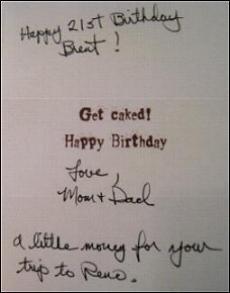 Happy 21st Birthday
Brent!
Get caked!
Happy Birthday
Love,
Mom + Dad
A little money for your
trip to Reno.